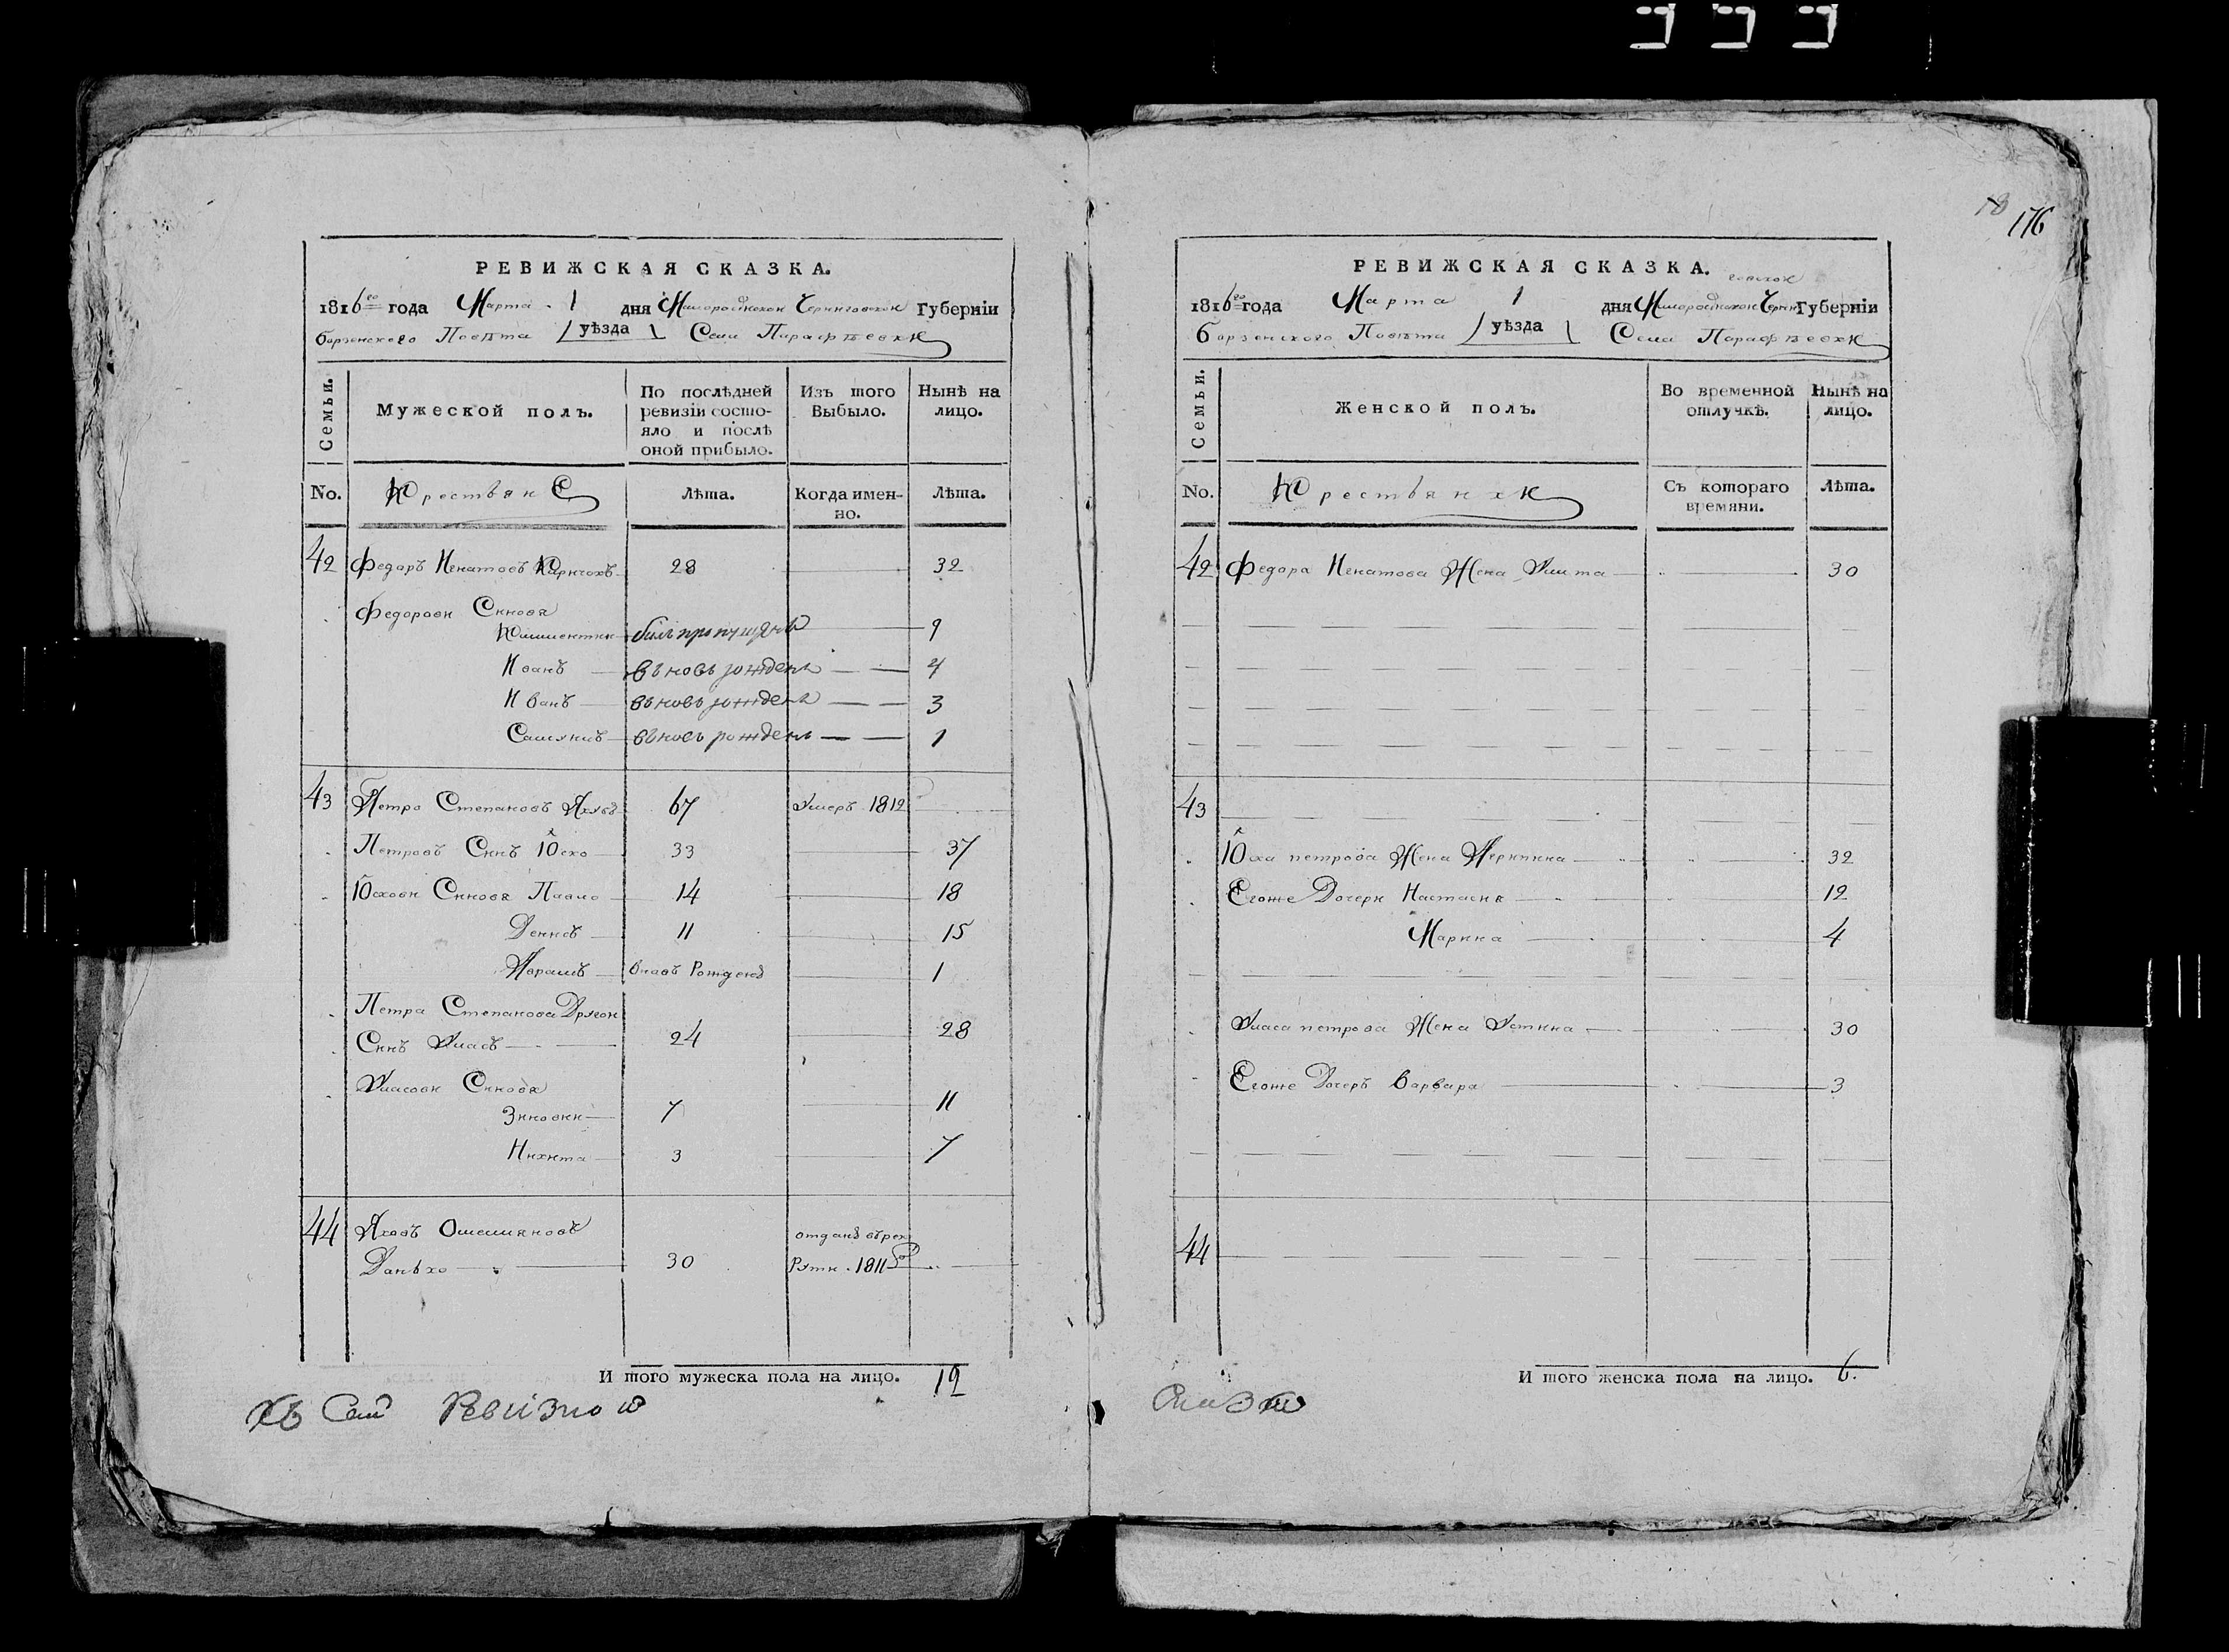 18
176
РЕВИЖСКАЯ СКАЗКА.
1816го года Марта 1 дня Малоросійской Черниговской Губерніи
борзенского Повѣта / уѣзда \ Села Парафѣевки
Семьи.
Мужеской полъ.
По послѣдней ревизіи состояло и послѣ оной прибыло.
Изъ того Выбыло.
Нынѣ на лицо.
No.
Крестьяне
Лѣта.
Когда именно.
Лѣта.
42 Федоръ Игнатовъ 28 32
Федорови Синовя
Климентии билъ пропущенъ 9
Иванъ въновь рожденъ 4
Иванъ въновь рожденъ 3
Самуилъ въновь рожденъ 1
43 Петро Степановъ 67 Умеръ 1812
Петровъ Синъ Юско 33 37
Юскови Синовя Павло 14 18
Денисъ 11 15
Аврамъ вновъ Рожденъ 1
Петра Степанова Другой
Синъ Уласъ 24 28
Уласови Синовя
Зиновии 7 11
Никита 3 7
44 Яковъ Омеляновъ отданъ в рек
Данько 30 Рути 1811го
И того мужеска пола на лицо. 12
къ Сей Ревизкой
РЕВИЖСКАЯ СКАЗКА.
говской
1816го года Марта 1 дня Малоросійской Черни Губерніи
борзенского Повѣта / уѣзда \ Села Парафѣевки
Семьи.
Женской полъ.
Во временной отлучкѣ.
Нынѣ на лицо.
No.
Крестьянки
Съ котораго времяни.
Лѣта.
42 Федора Игнатова Жена Улита 30
43
Юска петрова Жена 32
Егоже Дочери Настасия 12
Марина 4
Уласа петрова Жена Устина 30
Егоже Дочеръ Варвара 3
44
И того женска пола на лицо. 6.